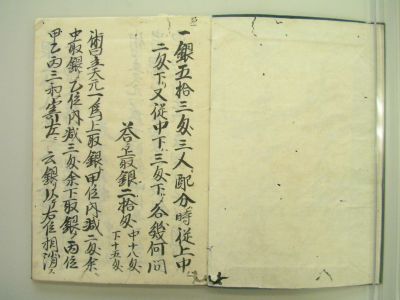 一銀五拾三匁三人配分時從上中
二匁下又從中下三匁下各幾何問
荅上取銀二拾匁 中十八匁
下十五匁
術曰立天元一爲上取銀甲位内減二匁余
中取銀乙位内減三匁余下取銀丙位
甲乙丙三和寄左 云銀以 位相消